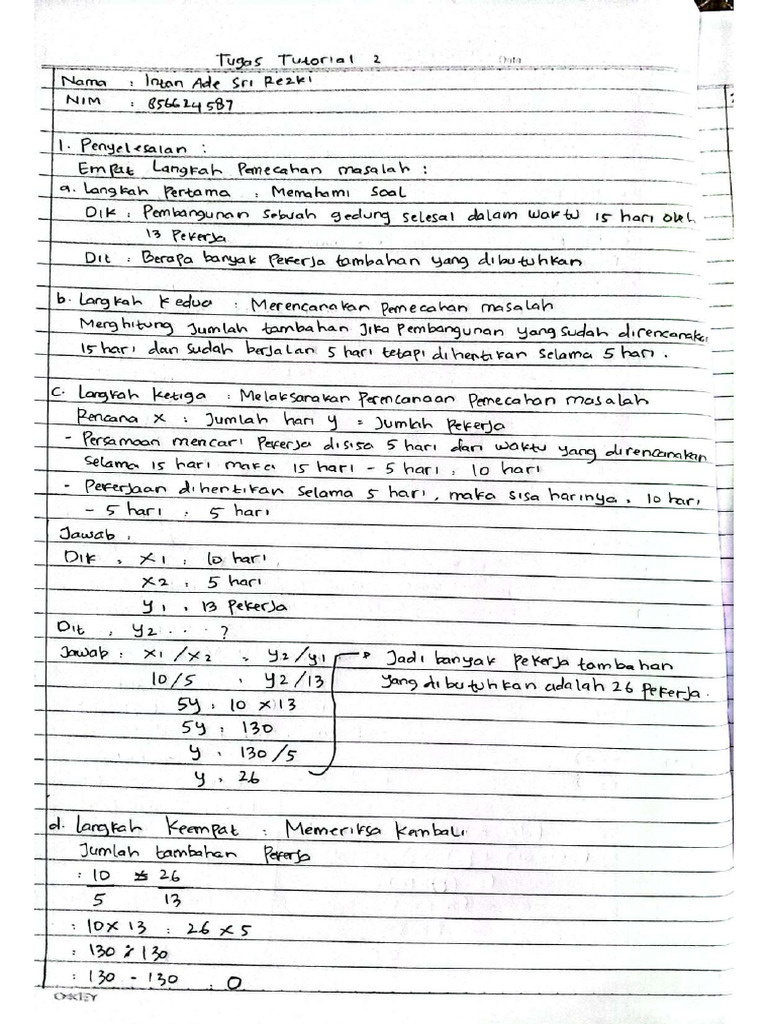 Tugas Tutorial 2
Date
Nama : Intan Ade Sri Rezki
NIM : 856624587
1. Penyelesaian :
Empat Langkah Pemecahan masalah :
a. Langkah Pertama : Memahami Soal
Dik : Pembangunan sebuah gedung selesai dalam waktu 15 hari oleh
13 Pekerja
Dit : Berapa banyak pekerja tambahan yang dibutuhkan
b. Langkah Kedua : Merencanakan pemecahan masalah
Menghitung Jumlah tambahan Jika Pembangunan yang sudah direncanakan
15 hari dan sudah berjalan 5 hari tetapi dihentikan selama 5 hari.
c. Langkah ketiga : Melaksanakan Perencanaan Pemecahan masalah
Rencana x : Jumlah hari y = Jumlah Pekerja
- Persamaan mencari Pekerja disisa 5 hari dari waktu yang direncanakan
selama 15 hari maka 15 hari - 5 hari : 10 hari
- Pekerjaan dihentikan Selama 5 hari, maka sisa harinya : 10 hari
- 5 hari : 5 hari
Jawab :
Dik : x1 : 10 hari
x2 : 5 hari
y1 : 13 Pekerja
Dit : y2 . . . ?
Jawab : x1/x2 : y2/y1
10/5 : y2/13
5y : 10 x 13
5y : 130
y : 130/5
y : 26
Jadi banyak pekerja tambahan
yang dibutuhkan adalah 26 pekerja.
d. Langkah Keempat : Memeriksa Kembali
Jumlah tambahan Pekerja
: 10 = 26
5 13
: 10 x 13 : 26 x 5
: 130 : 130
: 130 - 130 : 0